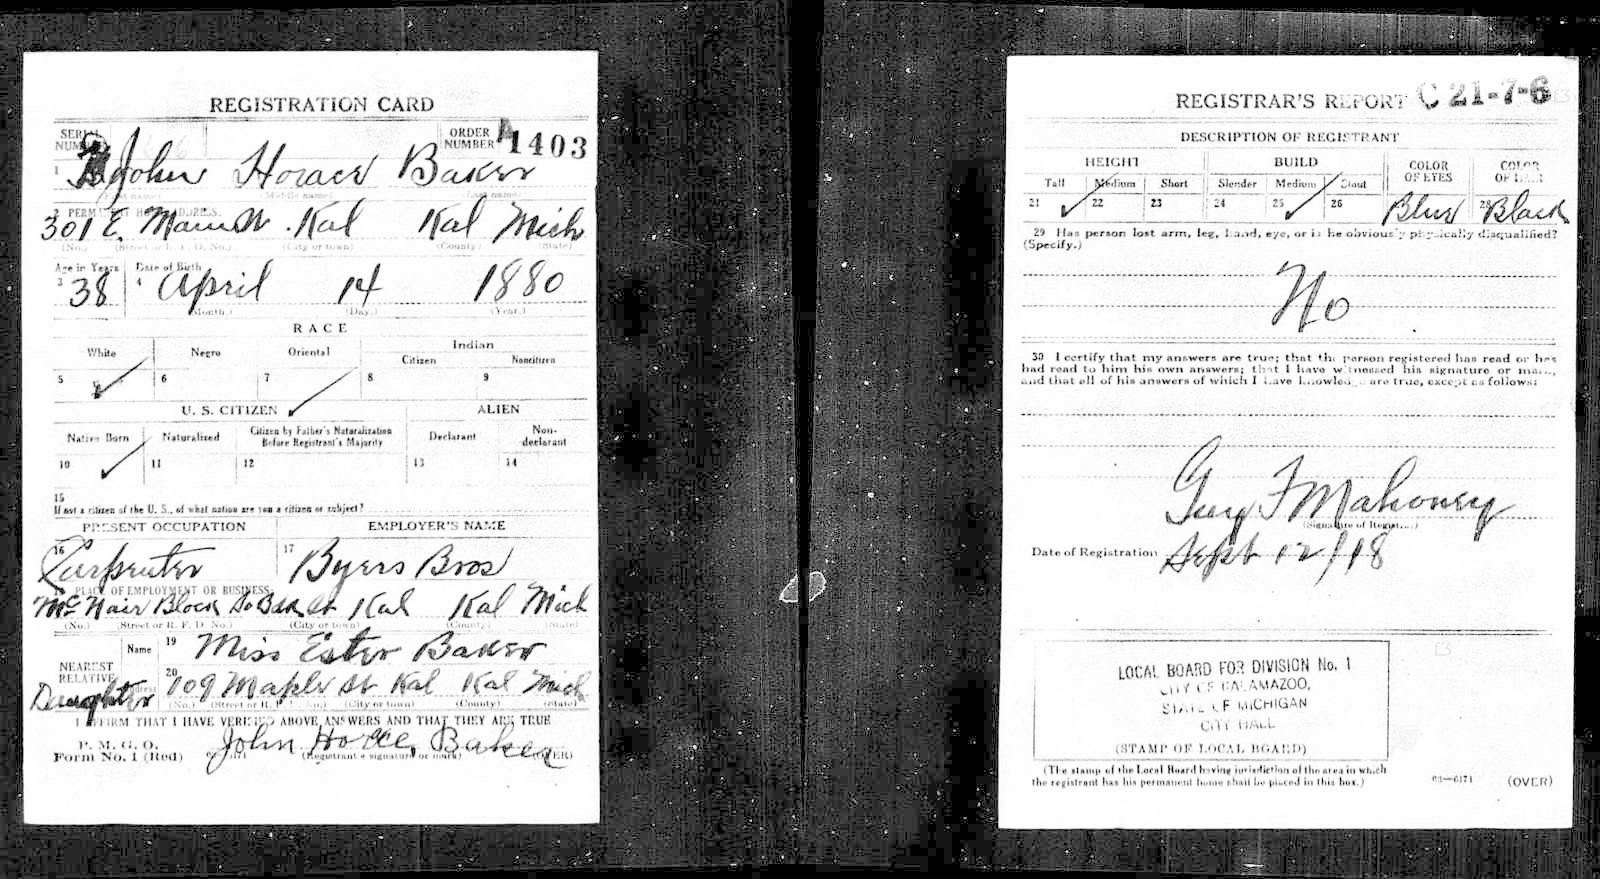 REGISTRATION CARD
SERIAL NUMBER
ORDER NUMBER A1403
1 John Horace Baker
(First name) (Middle name) (Last name)
2 PERMANENT HOME ADDRESS:
301 E. Main St. Kal Kal Mich
(No.) (Street or R. F. D. No.) (City or town) (County) (State)
Age in Years Date of Birth
3 38 4 April 14 1880
(Month.) (Day.) (Year.)
RACE
White Negro Oriental Indian
Citizen Noncitizen
5 6 7 8 9
U. S. CITIZEN ALIEN
Native Born Naturalized Citizen by Father's Naturalization Before Registrant's Majority Declarant Non-declarant
10 11 12 13 14
15
If not a citizen of the U. S., of what nation are you a citizen or subject?
PRESENT OCCUPATION EMPLOYER'S NAME
16 Carpenter 17 Byers Bros
18 PLACE OF EMPLOYMENT OR BUSINESS
McNair Block So St Kal Kal Mich
(No.) (Street or R. F. D. No.) (City or town) (County) (State)
NEAREST RELATIVE
Name 19 Miss Ester Baker
Daughter Address 20 109 Maple St Kal Kal Mich
(No.) (Street or R. F. D. No.) (City or town) (County) (State)
I AFFIRM THAT I HAVE VERIFIED ABOVE ANSWERS AND THAT THEY ARE TRUE
P. M. G. O.
Form No. 1 (Red) John Horce Baker
(Registrant's signature or mark) (OVER)
REGISTRAR'S REPORT C 21-7-6
DESCRIPTION OF REGISTRANT
HEIGHT BUILD COLOR OF EYES COLOR OF HAIR
Tall Medium Short Slender Medium Stout
21 22 23 24 25 26 Blue 28 Black
29 Has person lost arm, leg, hand, eye, or is he obviously physically disqualified?
(Specify.)
No
30 I certify that my answers are true; that the person registered has read or has
had read to him his own answers; that I have witnessed his signature or mark,
and that all of his answers of which I have knowledge are true, except as follows:
Guy F Mahoney
(Signature of Registrar)
Date of Registration Sept 12/18
LOCAL BOARD FOR DIVISION No. 1
CITY OF KALAMAZOO,
STATE OF MICHIGAN
CITY HALL
(STAMP OF LOCAL BOARD)
(The stamp of the Local Board having jurisdiction of the area in which
the registrant has his permanent home shall be placed in this box.)
03—6171 (OVER)